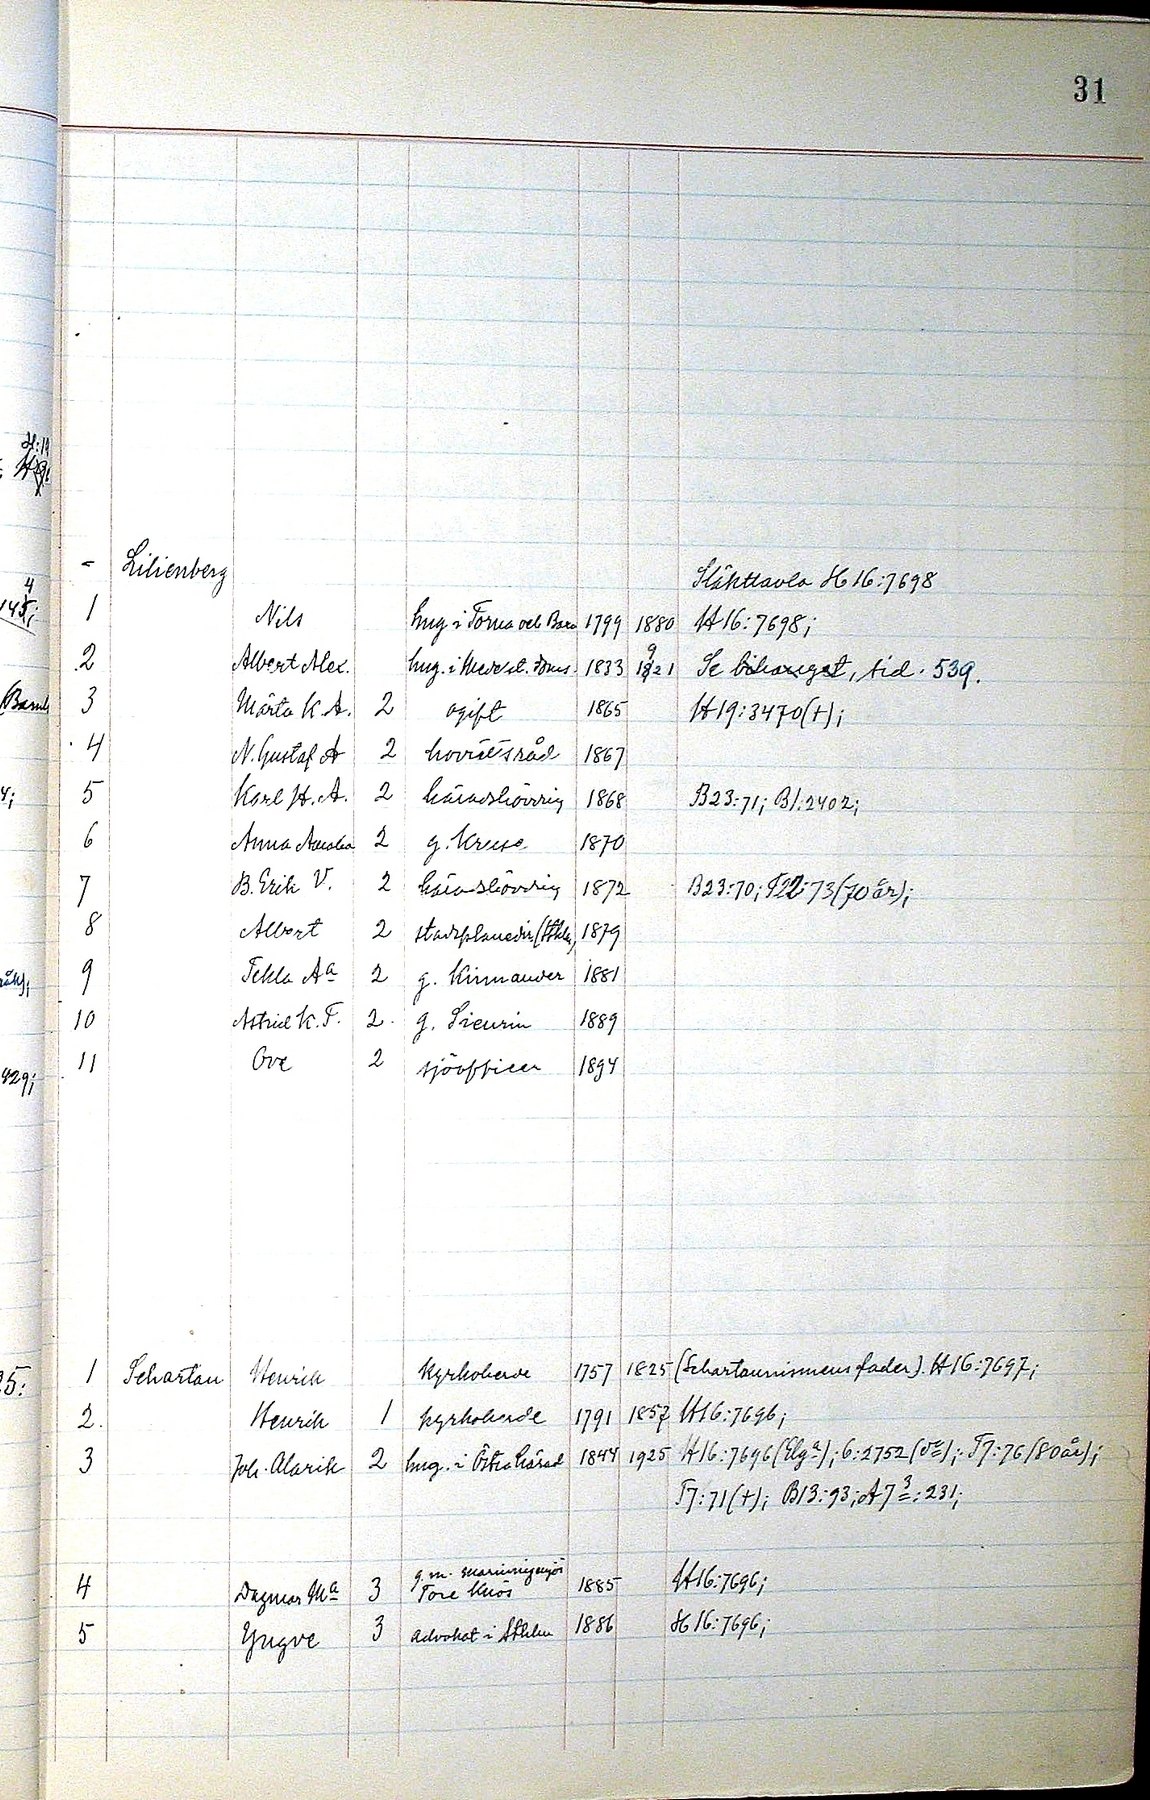 31
- Lilienberg Släkttavla H16:7698
1 Nils hug. i Torna och Bara 1799 1880 H16:7698;
2 Albert Alex. hug. i 1833 1921 Se bihanget, sid. 539.
3 Märta K. A. 2 ogift 1865 H19:3470(+);
4 N. Gustaf A 2 hovrättsråd 1867
5 Karl H. A. 2 häradshövding 1868 B23:71; B1:2402;
6 Anna Amalia 2 g. Kruse 1870
7 B. Erik V. 2 häradshövding 1872 B23:70; T22:73(70 år);
8 Albert 2 stadsplanedir (Sthlm) 1879
9 Tekla Aa 2 g. Kinnander 1881
10 Astrid K. F. 2 g. Sieurin 1889
11 Ove 2 sjöofficer 1894
1 Schartau Henrik kyrkoherde 1757 1825 (Schartaunismens fader). H16:7697;
2. Henrik 1 kyrkoherde 1791 1857 H16:7696;
3 Joh. Alarik 2 hug. i Östra härad 1844 1925 H16:7696(Elga); 6:2752(va); T7:76(80 år);
T7:71(+); B13:93; A7 3:231;
g. m. mariningenjör
4 Dagmar Ma 3 Tore Knös 1885 H16:7696;
5 Yngve 3 advokat i Sthlm 1886 H16:7696;